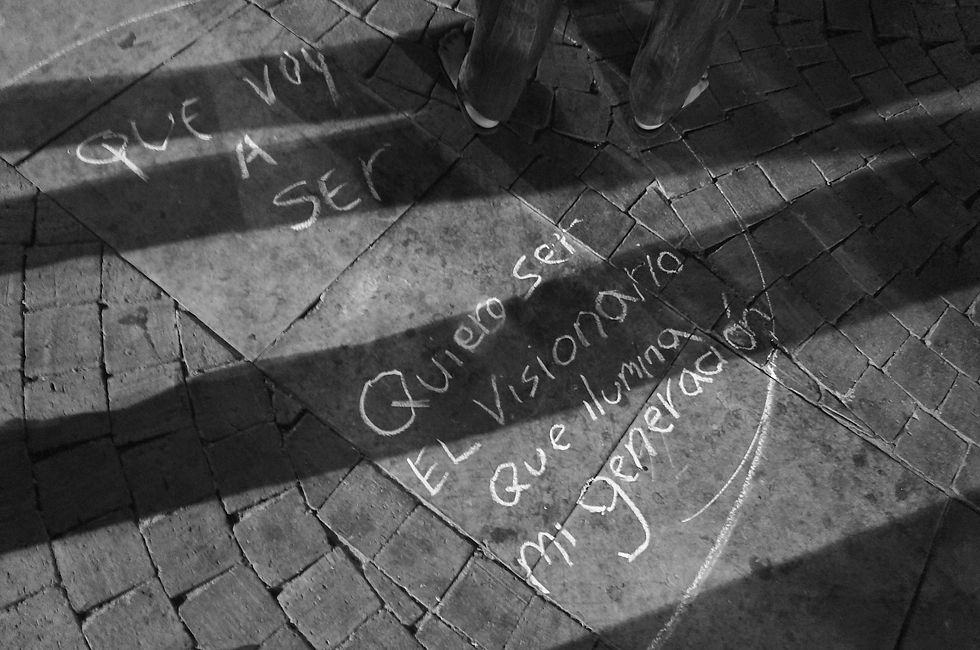 QUE VOY
A
SER
Quiero ser
EL visionario
Que ilumina
mi generación